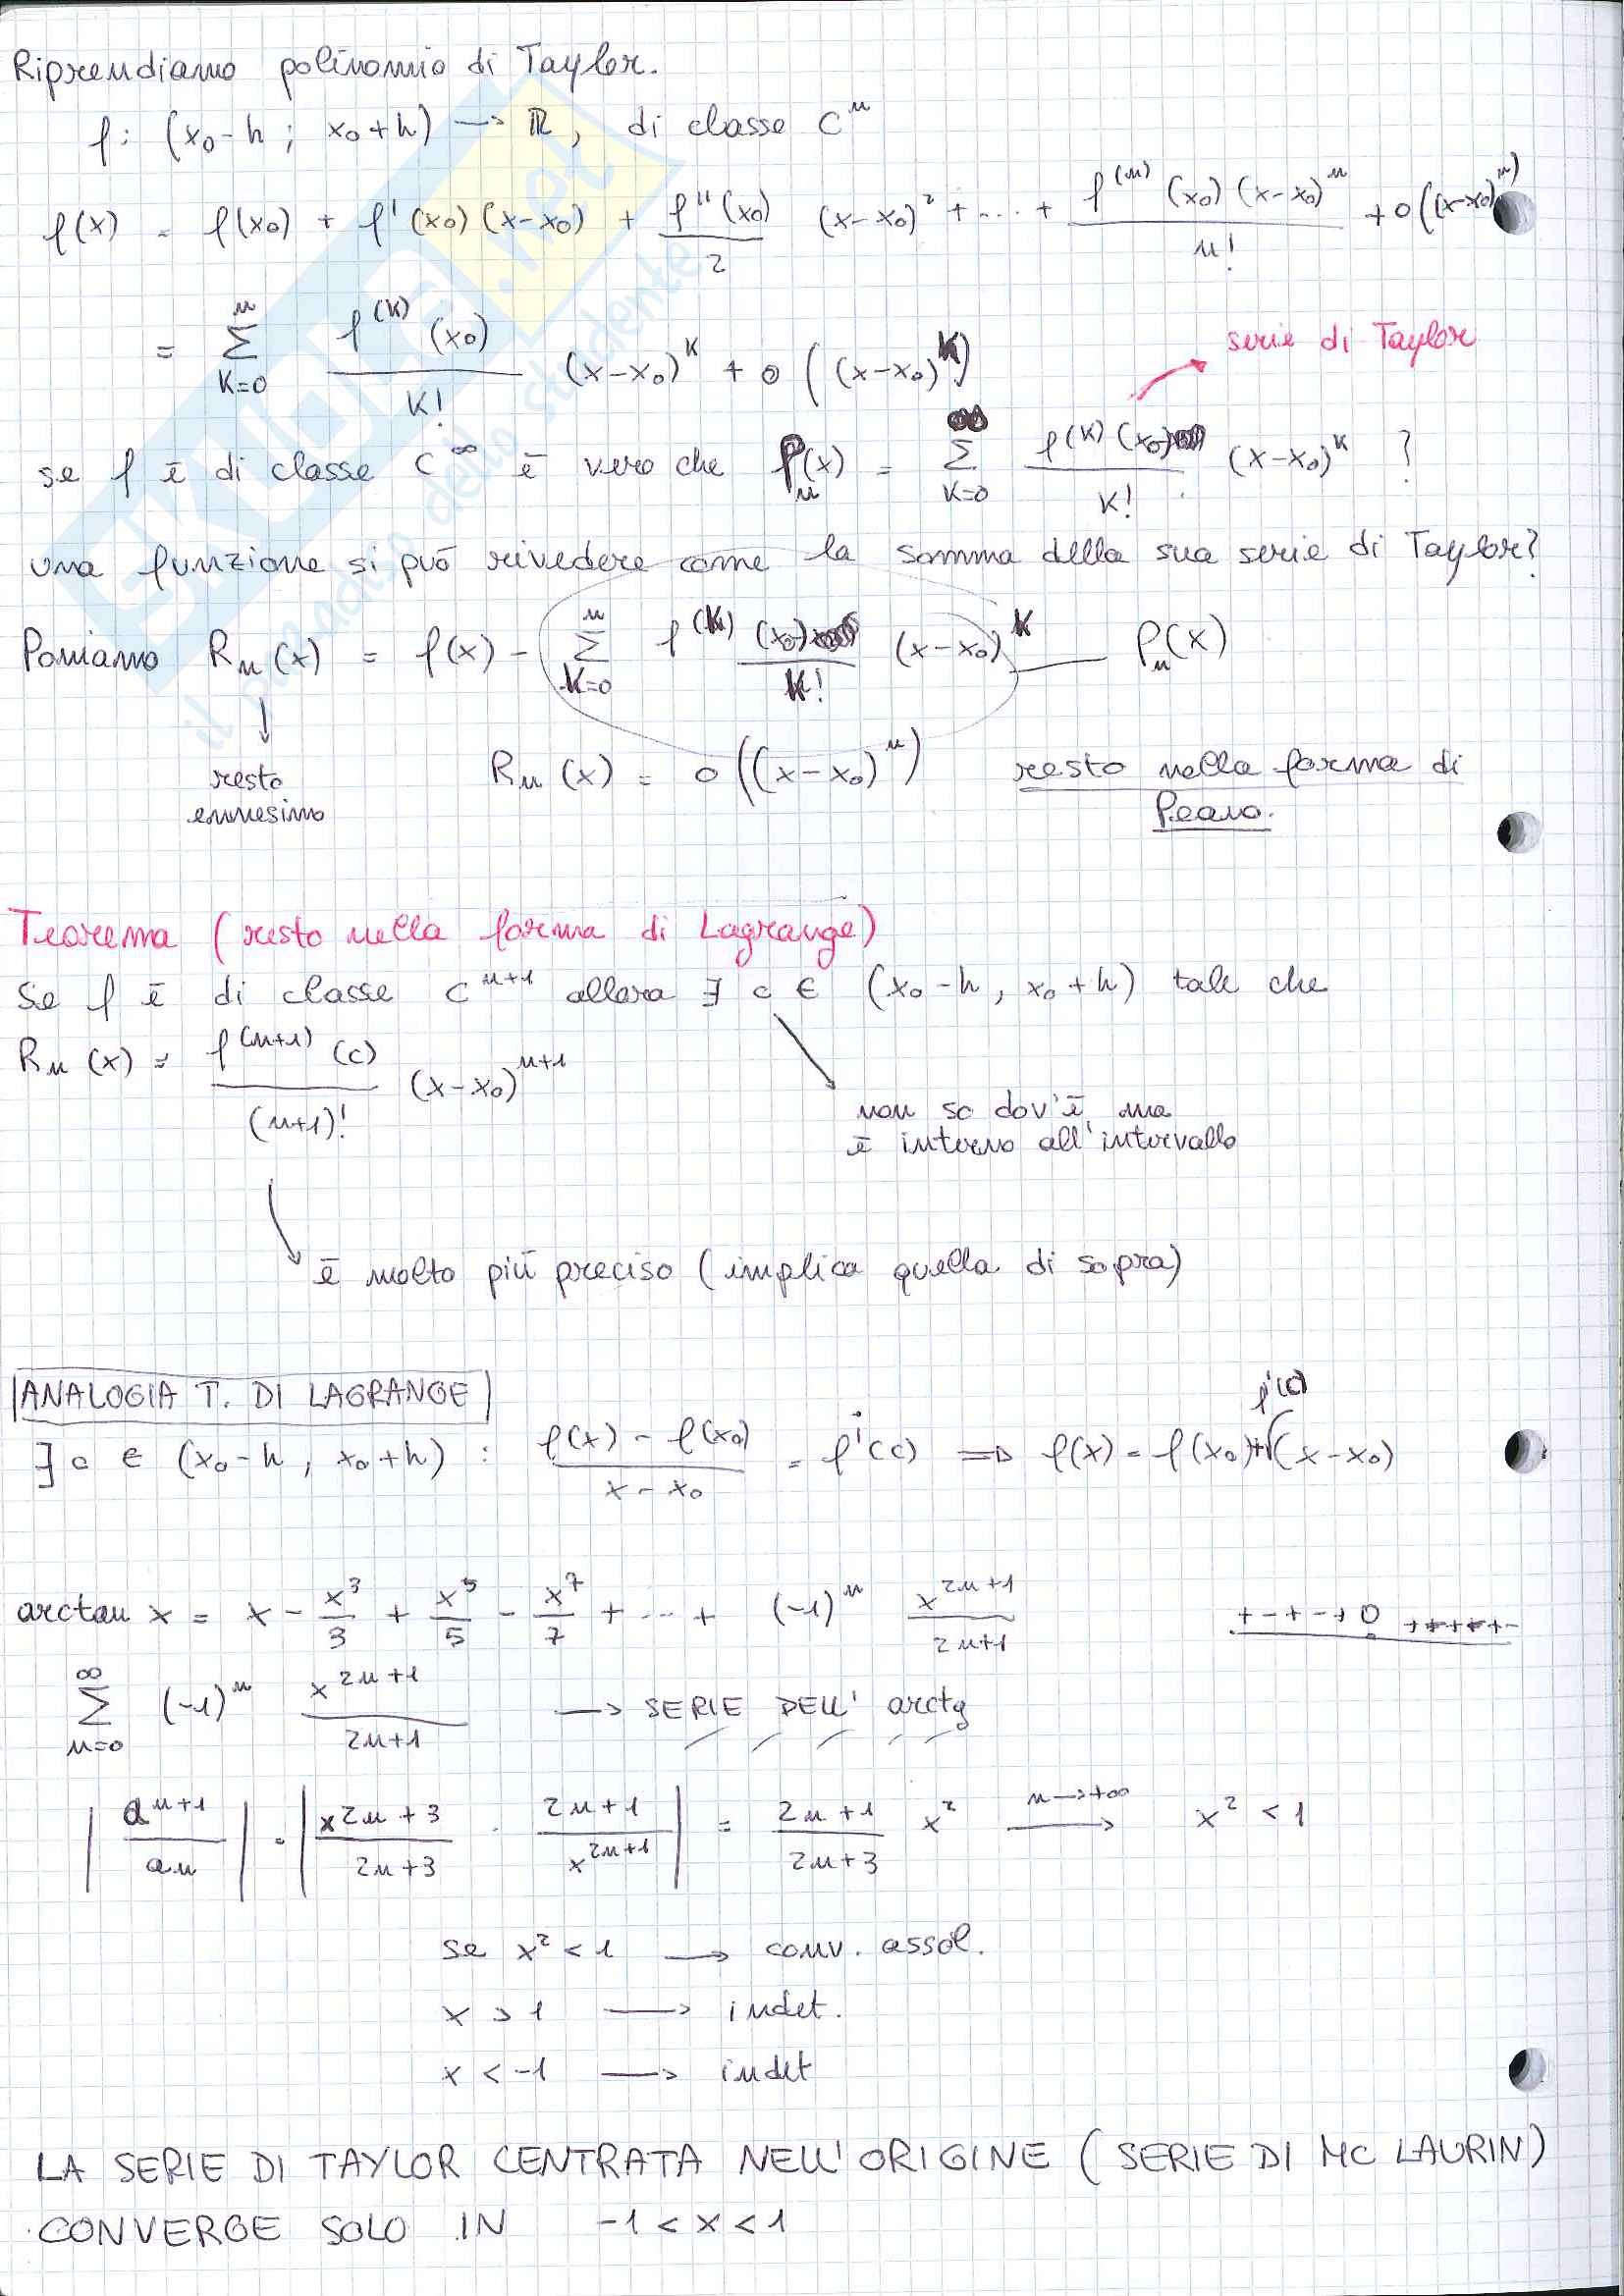 Riprendiamo polinomio di Taylor.
f: (x₀-h ; x₀+h) → ℝ, di classe Cⁿ
f(x) = f(x₀) + f'(x₀)(x-x₀) + f''(x₀)/2 (x-x₀)² + ... + f⁽ⁿ⁾(x₀)(x-x₀)ⁿ/n! + o((x-x₀)ⁿ)
= Σ_{K=0}^{n} f^(K)(x₀)/K! (x-x₀)^K + o((x-x₀)^K)
serie di Taylor
se f è di classe C^∞ è vero che P_n(x) = Σ_{K=0}^{∞} f^(K)(x₀)/K! (x-x₀)^K ?
una funzione si può rivedere come la somma della sua serie di Taylor?
Poniamo R_n(x) = f(x) - Σ_{K=0}^{n} f^(K)(x₀)/K! (x-x₀)^K — P_n(x)
resto ennesimo
R_n(x) = o((x-x₀)ⁿ) resto nella forma di Peano.
Teorema (resto nella forma di Lagrange)
Se f è di classe C^{n+1} allora ∃ c ∈ (x₀-h, x₀+h) tale che
R_n(x) = f^(n+1)(c)/(n+1)! (x-x₀)^{n+1}
non so dov'è ma
è interno all'intervallo
è molto più preciso (implica quella di sopra)
ANALOGIA T. DI LAGRANGE
∃ c ∈ (x₀-h, x₀+h) : (f(x) - f(x₀))/(x-x₀) = f'(c) ⇒ f(x) = f(x₀) + f'(c)(x-x₀)
arctan x = x - x³/3 + x⁵/5 - x⁷/7 + ... + (-1)ⁿ x^{2n+1}/2n+1
+-+-+ 0 +++++-
Σ_{n=0}^{∞} (-1)ⁿ x^{2n+1}/2n+1 → SERIE DELL' arctg
|a^{n+1}/an| = |x^{2n+3}/2n+3 · 2n+1/x^{2n+1}| = 2n+1/2n+3 x² n→+∞ → x² < 1
se x² < 1 → conv. assol.
x > 1 → indet.
x < -1 → indet
LA SERIE DI TAYLOR CENTRATA NELL'ORIGINE (SERIE DI MC LAURIN)
CONVERGE SOLO IN -1 < x < 1